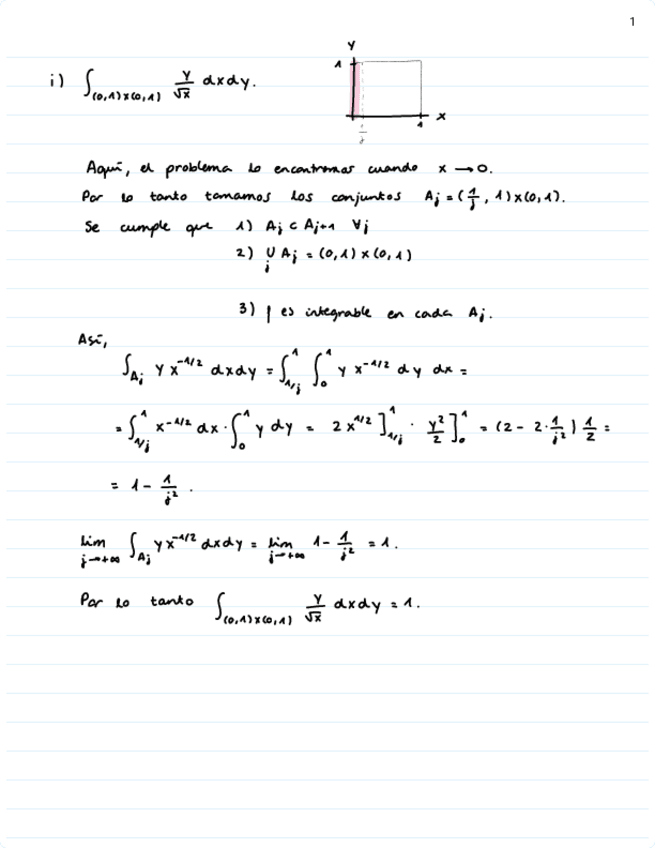 1
i) ∫_{(0,1)×(0,1)} y/√x dxdy.
y
1
x
1
1/j
Aquí, el problema lo encontramos cuando x → 0.
Por lo tanto tomamos los conjuntos A_j = (1/j, 1)×(0,1).
Se cumple que 1) A_j ⊂ A_{j+1} ∀j
2) ∪_j A_j = (0,1)×(0,1)
3) f es integrable en cada A_j.
Así,
∫_{A_j} y x^{-1/2} dxdy = ∫_{1/j}^1 ∫_0^1 y x^{-1/2} dy dx =
= ∫_{1/j}^1 x^{-1/2} dx · ∫_0^1 y dy = 2x^{1/2}]_{1/j}^1 · y²/2]_0^1 = (2 - 2·1/j²) 1/2 =
= 1 - 1/j².
lim_{j→+∞} ∫_{A_j} y x^{-1/2} dxdy = lim_{j→+∞} 1 - 1/j² = 1.
Por lo tanto ∫_{(0,1)×(0,1)} y/√x dxdy = 1.